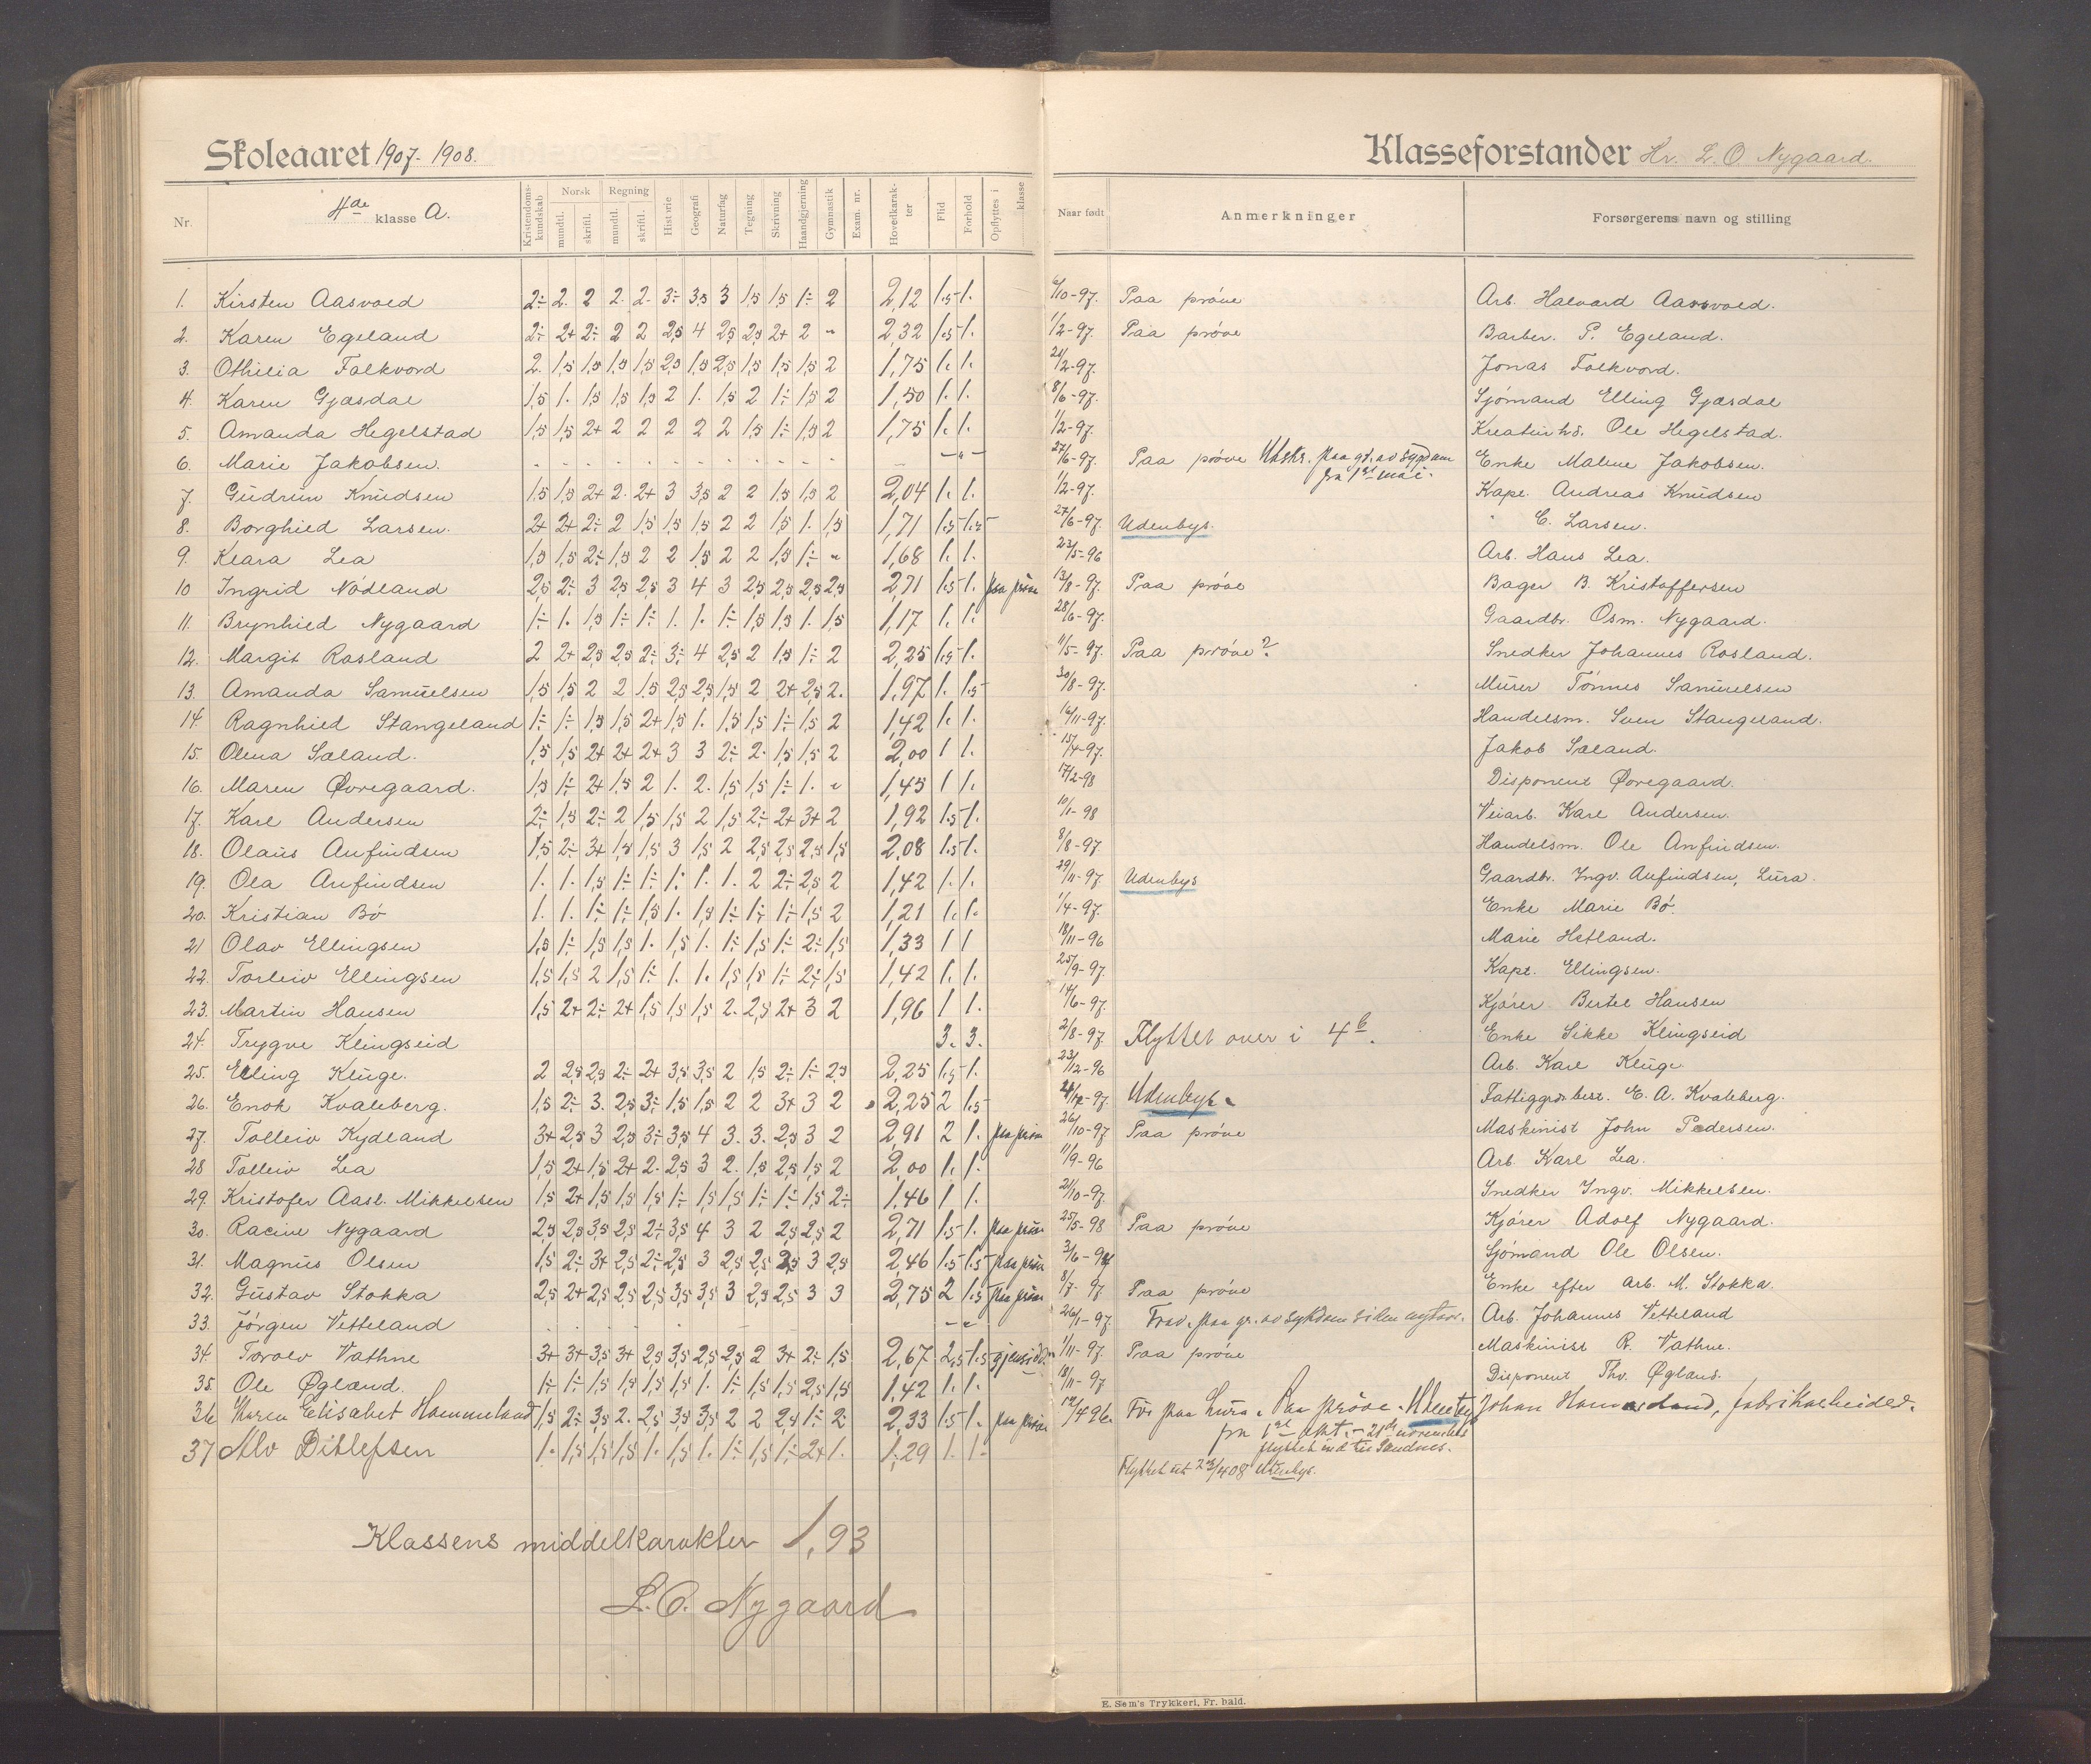 Skoleaaret 1907-1908.
Klasseforstander Hr. L. O. Nygaard.
Nr. 4de klasse A. Kristendomskundskab Norsk mundtl. skriftl. Regning mundtl. skriftl. Historie Geografi Naturfag Tegning Skrivning Haandgjerning Gymnastik Exam. nr. Hovedkarakter Flid Forhold Opflyttes i klasse Naar født Anmerkninger Forsørgerens navn og stilling
1. Kirsten Aasvold 2÷ 2. 2 2. 2. 3÷ 3,5 3 1,5 1,5 1÷ 2 2,12 1.5 1. 6/10-97. Paa prøve Arb. Halvard Aasvold.
2. Karen Egeland 2÷ 2+ 2÷ 2 2 2,5 4 2,5 2,5 2+ 2 " 2,32 1.5 1. 1/2-97. Paa prøve Barber. P. Egeland.
3. Othilia Folkvord 2. 1,5 1,5 1,5 1,5 2,5 1,5 2,5 1,5 1,5 1,5 2 1,75 1. 1. 21/2-97. Jonas Folkvord.
4. Karen Gjæsdal 1,5 1. 1,5 1,5 1,5 2 1. 1,5 2 1÷ 1,5 2 1,50 1. 1. 8/6-97. Sjømand Elling Gjæsdal
5. Amanda Hegelstad 1,5 1,5 2+ 2 2 2 2 2 1,5 1÷ 1,5 2 1,75 1. 1. 1/2-97. Kreaturhd. Ole Hegelstad.
6. Marie Jakobsen. 27/6-97. Paa prøve Utskr. paa gr. av sygdom Enke Malene Jakobsen.
fra 1st mai.
7. Gudrun Knudsen 1,5 1,5 2+ 2. 2+ 3 3,5 2 2 1,5 1,5 2 2,04 1. 1. 1/2-97. Kapt. Andreas Knudsen
8. Borghild Larsen. 2+ 2+ 2÷ 2 1,5 1,5 1,5 2 2 1,5 1. 1,5 1,71 1.5 1.5 27/6-97. Udenbys. " C. Larsen.
9. Klara Lea 1,5 1,5 2÷ 1,5 2 2 1,5 2 2 1,5 1÷ " 1,68 1. 1. 23/5-96 Arb. Hans Lea.
10 Ingrid Nødland 2,5 2÷ 3 2,5 2,5 3 4 3 2,5 2,5 2,5 2,5 2,71 1.5 1. paa prøve 13/8-97. Paa prøve Bager B. Kristoffersen
11. Brynhild Nygaard 1÷ 1. 1,5 1÷ 1÷ 1. 1. 1÷ 1,5 1,5 1. 1,5 1,17 1. 1. 28/6-97. Gaardbr. Osm. Nygaard.
12. Margit Rosland 2 2+ 2,5 2,5 2÷ 3÷ 4 2,5 2 1,5 1÷ 2 2,25 1.5 1. 11/5-97. Paa prøve? Snedker Johannes Rosland.
13. Amanda Samuelsen 1,5 1,5 2 2 1,5 2,5 2,5 1,5 2 2+ 2,5 2. 1,97 1. 1.5 30/8-97. Murer Tønnes Samuelsen
14 Ragnhild Stangeland 1÷ 1÷ 1,5 1,5 2+ 1,5 1. 1,5 1,5 1÷ 1,5 2 1,42 1. 1. 16/11-97. Handelsm. Sven Stangeland.
15. Olena Sæland. 1,5 1,5 2+ 2+ 2+ 3 3 2÷ 2. 1,5 1,5 2 2,00 1 1. 15/4-97. Jakob Sæland.
16. Maren Øvregaard. 1,5 1÷ 2+ 1,5 2 1. 2. 1,5 1,5 1÷ 1. " 1,45 1 1. 17/2-98 Disponent Øvregaard.
17. Karl Andersen 2÷ 1,5 2÷ 2 1,5 1,5 2 1,5 2÷ 2+ 3+ 2 1,92 1.5 1. 10/1-98 Veiarb. Karl Andersen.
18. Olaus Anfindsen 1,5 2÷ 3+ 1,5 1,5 3 1,5 2 2,5 2,5 2,5 1,5 2,08 1.5 1. 8/8-97 Handelsm. Ole Anfindsen.
19. Ola Anfindsen 1. 1. 1,5 1÷ 1÷ 1÷ 1. 1. 2 2÷ 2,5 2 1,42 1. 1. 29/11-97. Udenbys Gaardbr. Ingv. Anfindsen, Lura.
20. Kristian Bø 1. 1. 1÷ 1÷ 1,5 1. 1,5 1÷ 1÷ 1÷ 1,5 2 1,21 1. 1. 1/4-97. Enke Marie Bø.
21 Olav Ellingsen 1,5 1÷ 1,5 1,5 1. 1,5 1. 1÷ 1,5 1÷ 2÷ 1,5 1,33 1 1 18/11-96 Marie Hetland.
22. Torleiv Ellingsen 1,5 1,5 2 1,5 1÷ 1. 1. 1,5 1,5 1÷ 2÷ 1,5 1,42 1. 1. 25/9-97. Kapt. Ellingsen.
23. Martin Hansen 1,5 2+ 2÷ 2+ 1,5 1,5 1,5 2. 2,5 2+ 3 2 1,96 1 1. 14/6-97. Kjører Bertel Hansen
24. Trygve Klingseid 3. 3. 2/8-97. Flyttet over i 4b. Enke Sikke Klingseid
25. Elling Kluge. 2 2,5 2,5 2÷ 2+ 3,5 3,5 2 1,5 2÷ 1÷ 2,5 2,25 1.5 1. 23/12-96 Arb. Karl Kluge
26. Enok Kvaleberg. 1,5 2÷ 3. 2,5 3÷ 1,5 1,5 2 2 3+ 3 2 2,25 2 1.5 21/12-97. Udenbys. Fattiggrdbest. E. A. Kvaleberg.
27. Tolleiv Kydland 3+ 2,5 3 2,5 3÷ 3,5 4 3. 3. 2,5 3 2 2,91 2 1. paa prøve 26/10-97 Paa prøve Maskinist John Pedersen.
28 Tolleiv Lea 1,5 2+ 1,5 2+ 2. 2,5 3 2. 1,5 2,5 1,5 2 2,00 1. 1. 11/9-96 Arb. Karl Lea.
29. Kristofer Aasl. Mikkelsen 1,5 2+ 1,5 1,5 1,5 1÷ 1,5 1,5 1÷ 1÷ 1,5 2÷ 1,46 1 1. 21/10-97. Snedker Ingv. Mikkelsen.
30. Racine Nygaard 2,5 2,5 3,5 2,5 2÷ 3,5 4 3 2 2,5 2,5 2 2,71 1.5 1. paa prøve 25/5-98 Paa prøve Kjører Adolf Nygaard.
31. Magnus Olsen 1,5 2÷ 3+ 2,5 2÷ 2,5 3 2,5 2,5 2,5 3 2,5 2,46 1.5 1.5 paa prøve 3/6-97 Sjømand Ole Olsen.
32. Gustav Stokka 2,5 2+ 2,5 2,5 2,5 3,5 3,5 3 2,5 2,5 3 3 2,75 2 1.5 paa prøve 8/7-97 Paa prøve Enke efter arb. M. Stokka.
33. Jørgen Vetteland 26/1-97. Frav. paa gr. av sykdom siden nytaar. Arb. Johannes Vetteland
34. Torolv Vathne 3+ 3+ 3,5 3+ 2,5 3,5 2,5 2,5 2 3+ 2÷ 1,5 2,67 2,5 1.5 gjensidder 1/11-97. Paa prøve Maskinist R. Vathne.
35. Ole Øgland. 1÷ 1÷ 1,5 1,5 1,5 1,5 1. 1÷ 1,5 1,5 2,5 1,5 1,42 1. 1. 18/11-97 Disponent Thv. Øglans.
36 Karen Elisabet Hammeland 1,5 2÷ 3,5 2. 2,5 3,5 3,5 2 2 2,5 1÷ 2 2,33 1.5 1. paa prøve 12/4 96. Før paa Lura. Paa prøve. Udenbys Johan Hammeland, fabrikarbeider.
fra 1st okt. - 21de november
flyttet ind til Sandnes.
37 Alv Ditlefsen 1. 1,5 1,5 1,5 1. 1,5 1. 1÷ 1,5 1÷ 2+ 1. 1,29 1. 1. Flyttet ut 23/4 08 Utenbys.
Klassens middelkarakter 1,93
L. O. Nygaard
E. Sem's Trykkeri, Fr. hald.